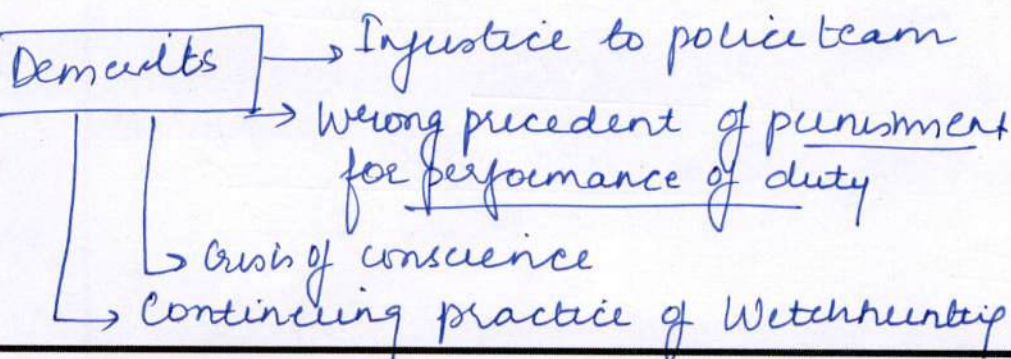 Demerits → Injustice to police team
→ Wrong precedent of punishment
for performance of duty
→ Crisis of conscience
→ Continuing practice of Witchhunting